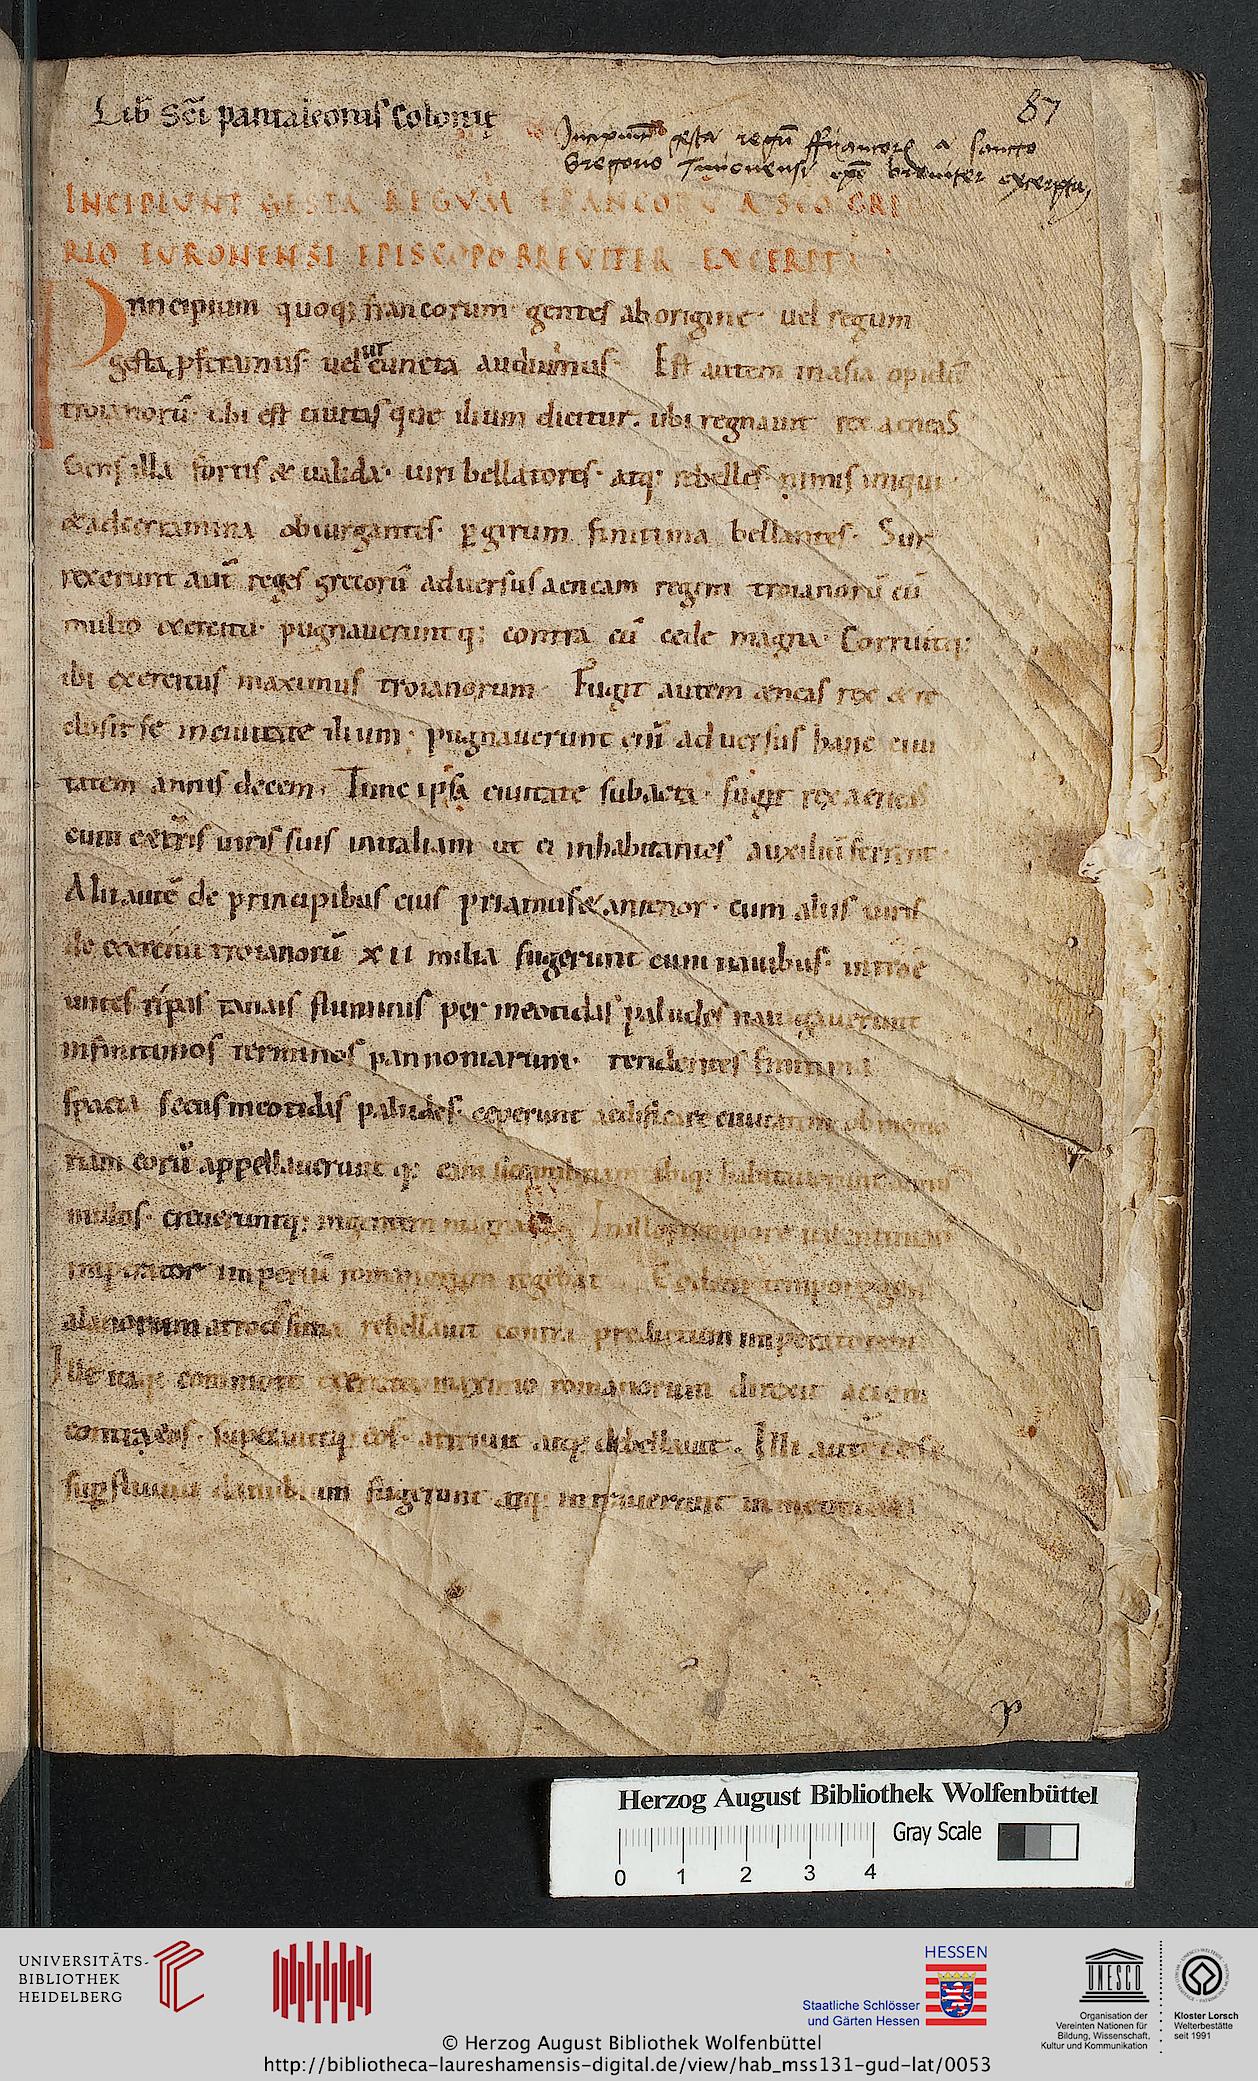 Lib̄ Sc̄i pantaleonis Colonię
87
Incipiunt gesta regū ffrancorꝝ a sancto
Gregorio Turonensi ep̄o breuiter excerpta,
INCIPIUNT GESTA REGVM FRANCORV A SCO GRE
RIO TVRONENSI EPISCOPO BREVITER EXCERPTA
Principium quoq; francorum· gentes ab origine· uel regum
gesta pferamus· uel ut cuncta audiuimus· Est autem inasia opidū
troianorū· ubi est ciuitas que ilium dicitur. ubi regnauit rex aeneas
Gens illa fortis & ualida· uiri bellatores· atq; rebelles nimis iniqui·
& adcertamina obiurgantes· ꝑ girum finitima bellantes· Sur
rexerunt aut̄ reges gretorū aduersus aeneam regem troianorū cū
multo exercitu· pugnaueruntq; contra eū cede magna· Corruitq;
ibi exercitus maximus troianorum· Fugit autem aeneas rex & re
clusit se inciuitate ilium· pugnauerunt eni aduersus hanc ciui
tatem annis decem· Tunc ipsa ciuitate subacta· fugit rex aeneas
cum ceteris uiris suis initaliam ut ei inhabitantes auxiliū ferrent·
Alii autē de principibus eius priamus & antenor· cum aliis uiris
de exercitu troianorū xii milia fugerunt cum nauibus· introe
untes ripas tanais fluminis per meotidas paludes nauigauerunt
infinitimos terminos pannoniarum· tendentes finitima
spacia secus meotidas paludes· ceperunt aedificare ciuitatem ob memo
riam eorū appellaueruntq; eam sicambriam ibiq; habitauerunt annis
multos· creueruntq; ingentem magnam Inillo tempore ualentinian
imperator imperiū romanorum regebat Eodem tempore gens
alanorum atrocissima rebellauit contra predictum imperatorem
Ille itaq; commoto exercitu maximo romanorum direxit aciem
contra eos· superauitq; eos· atriuit atq; debellauit. Illi aut̄ cesi
suꝑ fluuiū danubium fugerunt atq; intrauerunt inmeotidas
p
Herzog August Bibliothek Wolfenbüttel
Gray Scale
0 1 2 3 4
UNIVERSITÄTS-
BIBLIOTHEK
HEIDELBERG
HESSEN
Staatliche Schlösser
und Gärten Hessen
UNESCO
Organisation der
Vereinten Nationen für
Bildung, Wissenschaft,
Kultur und Kommunikation
Kloster Lorsch
Welterbestätte
seit 1991
© Herzog August Bibliothek Wolfenbüttel
http://bibliotheca-laureshamensis-digital.de/view/hab_mss131-gud-lat/0053